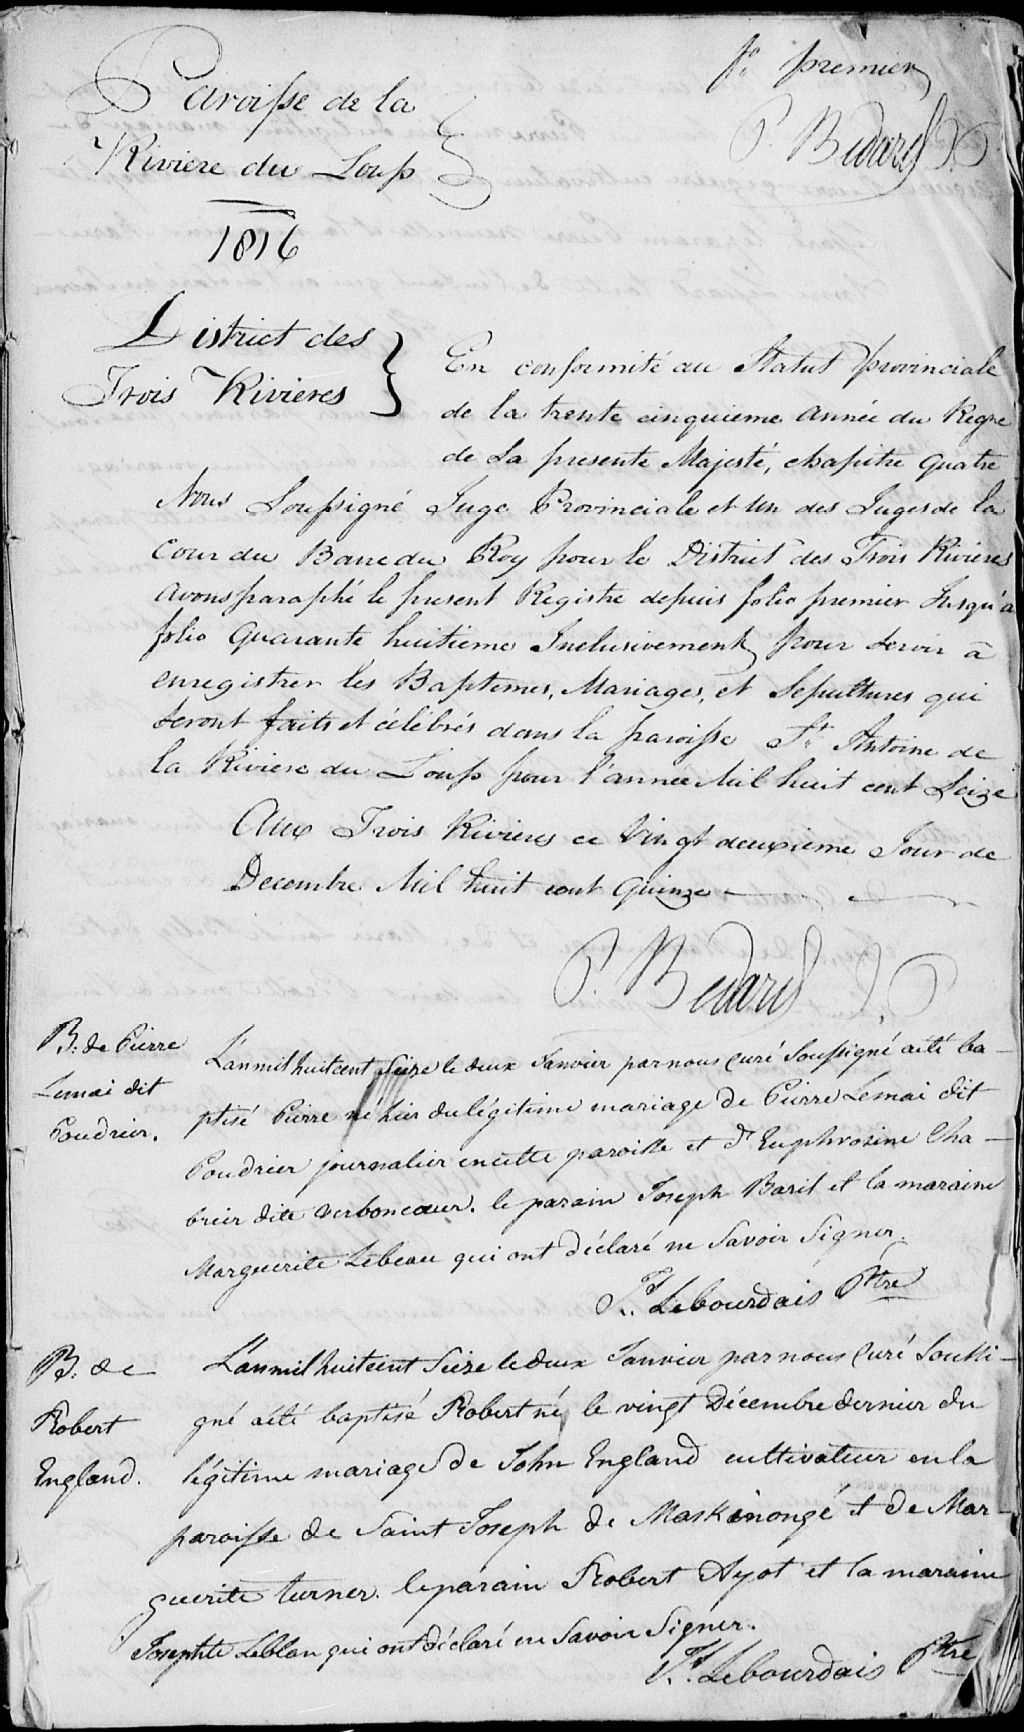 fo. premier
P. Bedard J.P.
Paroisse de la
Riviere du Loup
1816
District des
Trois Rivieres
En conformité au Statut provinciale
de la trente cinquieme année du Regne
de Sa presente Majesté, chapitre Quatre
Nous Soussigné Juge Provinciale et Un des Juges de la
Cour du Banc du Roy pour le District des Trois Rivieres
avons paraphé le present Registre depuis folio premier Jusqu'a
folio Quarante huitieme Inclusivement pour servir a
enregistrer les Baptemes, Mariages, et Sepultures qui
seront faits et célébrés dans la paroisse St. Antoine de
la Riviere du Loup pour l'année Mil huit cent Seize
Aux Trois Rivieres ce Vingt deuxieme Jour de
Decembre Mil huit cent Quinze
P. Bedard J.P.
B: de Pierre
Lemai dit
Poudrier.
L'an mil huit cent Seize le deux Janvier par nous Curé Soussigné a été ba-
ptisé Pierre né hier du légitime mariage de Pierre Lemai dit
Poudrier journalier en cette paroisse et d'Euphrosine Cha-
brier dite verboncoeur. le parain Joseph Baril et la maraine
Marguerite Lebeau qui ont déclaré ne Savoir Signer.
Lebourdais Ptre
B. de
Robert
England.
L'an mil huit cent Seize le deux Janvier par nous Curé Soussi-
gné a été baptisé Robert né le vingt Décembre dernier du
légitime mariage de John England cultivateur en la
paroisse de Saint Joseph de Maskinongé et de Mar-
guerite turner. le parain Robert Ayot et la maraine
Josephte Leblan qui ont déclaré ne Savoir Signer.
Lebourdais Ptre